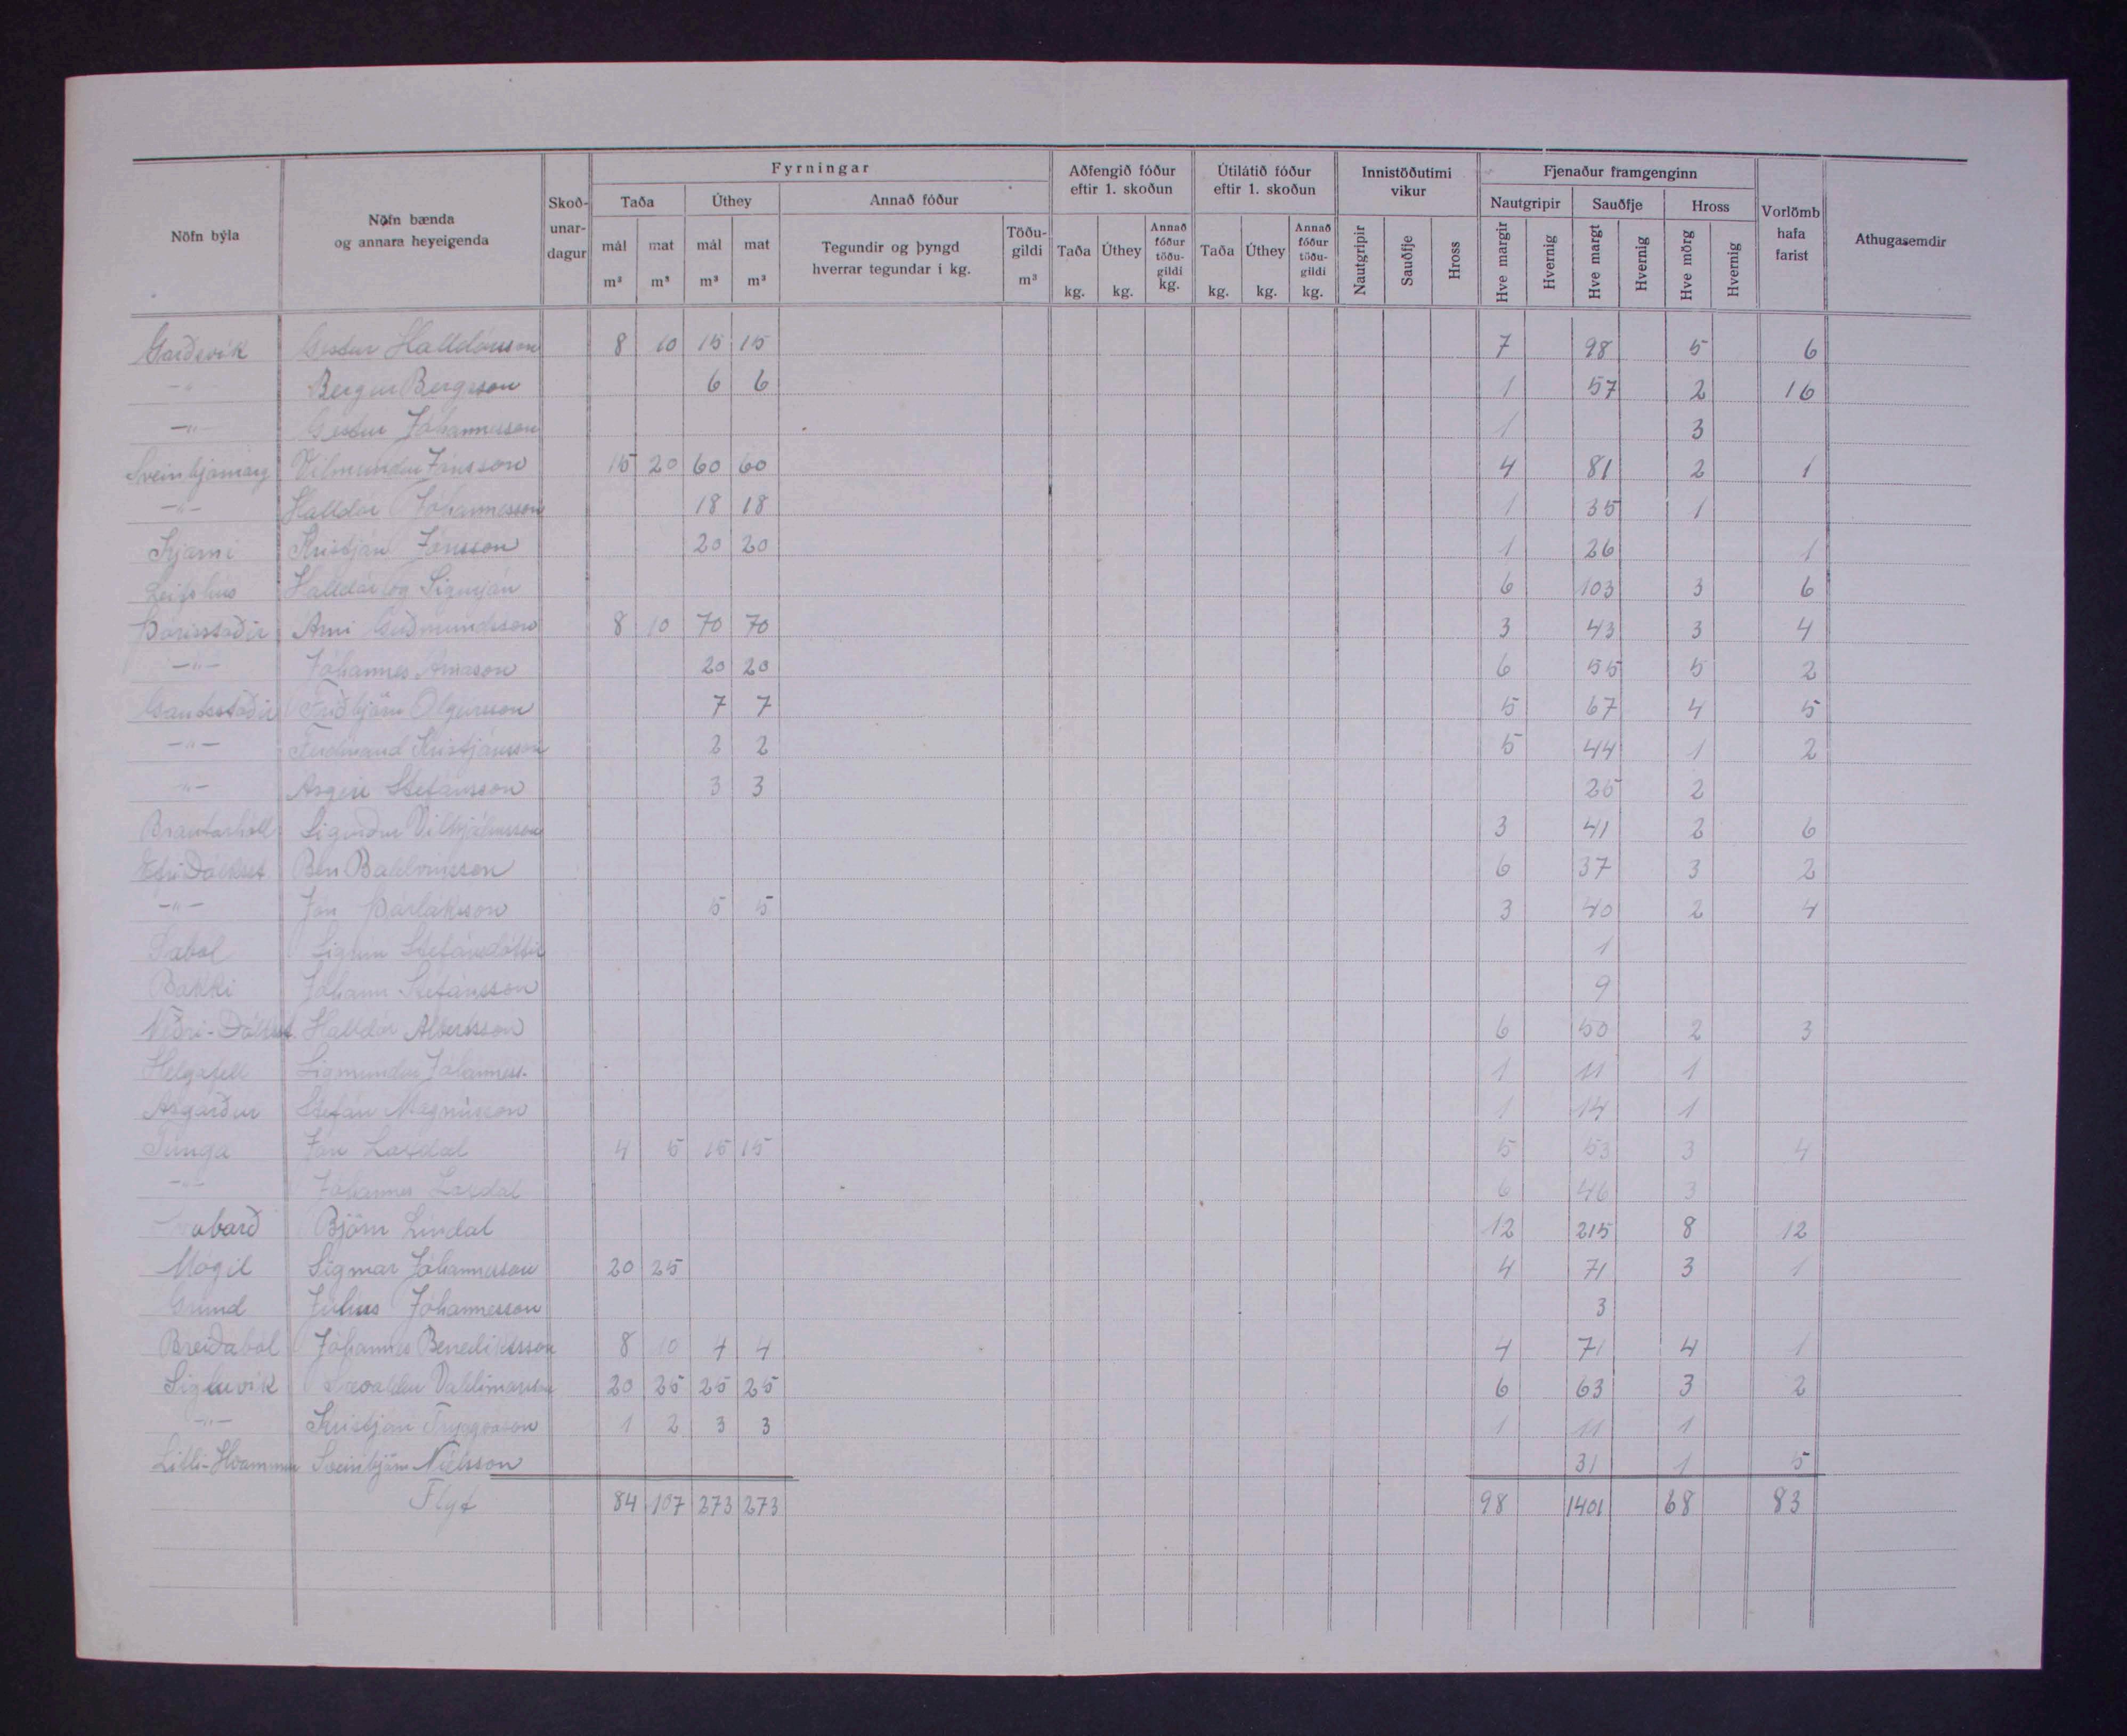 Fyrningar
Aðfengið fóður eftir 1. skoðun
Útilátið fóður eftir 1. skoðun
Innistöðutími vikur
Fjenaður framgenginn
Nöfn býla
Nöfn bænda og annara heyeigenda
Skoð-unar-dagur
Taða Úthey Annað fóður
Nautgripir Sauðfje Hross
Vorlömb hafa farist
Athugasemdir
mál m³ mat m³ mál m³ mat m³
Tegundir og þyngd hverrar tegundar í kg.
Töðu-gildi m³
Taða kg. Úthey kg. Annað fóður töðu-gildi kg.
Taða kg. Úthey kg. Annað fóður töðu-gildi kg.
Nautgripir Sauðfje Hross
Hve margir Hvernig Hve margt Hvernig Hve mörg Hvernig
Garðsvík Gestur Halldórsson 8 10 15 15 7 98 5 6
-"- Bergur Bergsson 6 6 1 57 2 16
-"- Gestur Jóhannesson 1 3
Sveinbjarnarg Vilmundur Jónsson 15 20 60 60 4 81 2 1
-"- Halldór Jóhannesson 18 18 1 35 1
Kjarni Kristján Jónsson 20 20 1 26 1
Leifshús Halldór og Sigurján 6 103 3 6
Þórisstaðir Árni Guðmundsson 8 10 70 70 3 43 3 4
-"- Jóhannes Árnason 20 20 6 55 5 2
Gautsstaðir Friðbjörn Olgeirsson 7 7 5 67 4 5
-"- Ferdinand Kristjánsson 2 2 5 44 1 2
-"- Asgeir Stefánsson 3 3 25 2
Brautarhóll Sigurður Vilhjálmsson 3 41 2 6
Efri Dálkst Ben Baldvinsson 6 37 3 2
-"- Jón Þorláksson 5 5 3 40 2 4
Sæból Sigrún Stefánsdóttir 1
Bakki Jóhann Stefánsson 9
Neðri-Dálkst. Halldór Albertsson 6 50 2 3
Helgafell Sigmundur Jóhanness. 1 11 1
Asgarður Stefán Magnússon 1 14 1
Tunga Jón Laxdal 4 5 15 15 5 53 3 4
-"- Jóhannes Laxdal 6 46 3
abarð Björn Líndal 12 215 8 12
Mógil Sigmar Jóhannesson 20 25 4 71 3 1
Grund Júlíus Jóhannesson 3
Breiðaból Jóhannes Benediktsson 8 10 4 4 4 71 4 1
Sigluvík Valdimarsson 20 25 25 25 6 63 3 2
-"- Kristján Tryggvason 1 2 3 3 1 11 1
Litli-Hvammur Sveinbjörn Níelsson 31 1 5
Flyt 84 107 273 273 98 1401 68 83